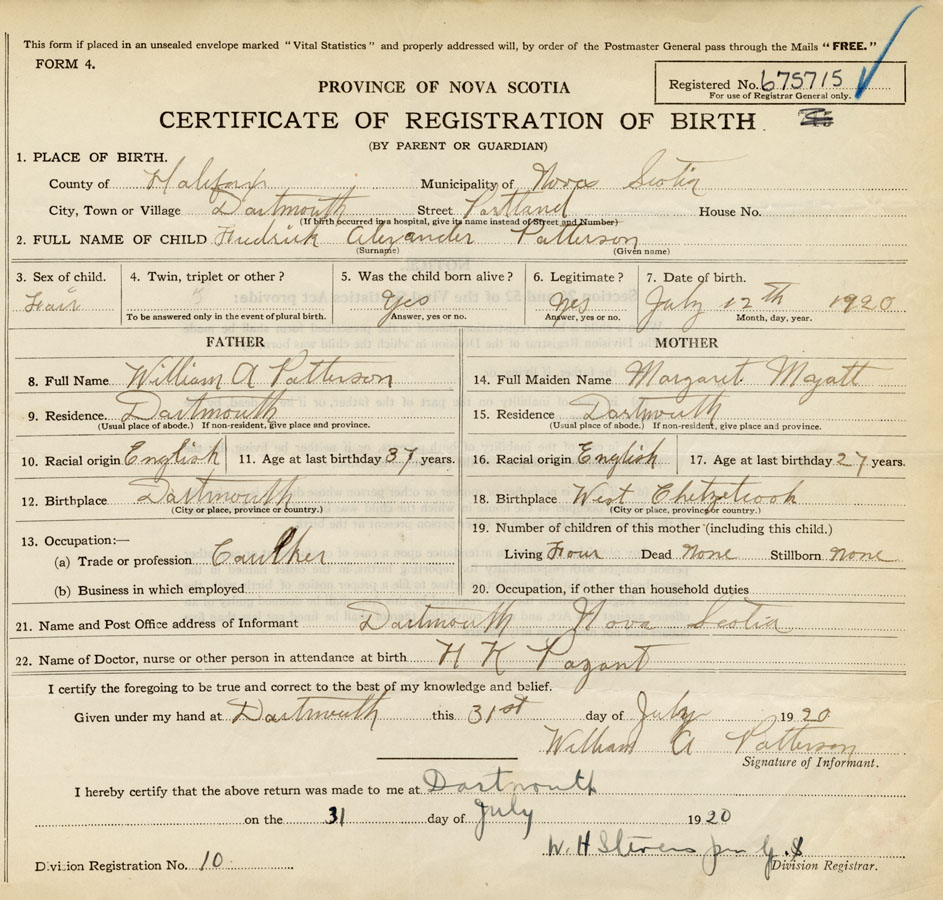 This form if placed in an unsealed envelope marked "Vital Statistics" and properly addressed will, by order of the Postmaster General pass through the Mails "FREE."
FORM 4.
Registered No. 675715
For use of Registrar General only.
PROVINCE OF NOVA SCOTIA
CERTIFICATE OF REGISTRATION OF BIRTH
(BY PARENT OR GUARDIAN)
1. PLACE OF BIRTH.
County of Halifax Municipality of Nova Scotia
City, Town or Village Dartmouth Street Portland House No.
(If birth occurred in a hospital, give its name instead of Street and Number)
2. FULL NAME OF CHILD Fredrick Alexander Patterson
(Surname) (Given name)
3. Sex of child. 4. Twin, triplet or other? 5. Was the child born alive? 6. Legitimate? 7. Date of birth.
Yes Yes July 12th 1920
To be answered only in the event of plural birth. Answer, yes or no. Answer, yes or no. Month, day, year.
FATHER MOTHER
8. Full Name William A Patterson 14. Full Maiden Name Margaret Myatt
9. Residence. Dartmouth 15. Residence Dartmouth
(Usual place of abode.) If non-resident, give place and province. (Usual place of abode.) If non-resident, give place and province.
10. Racial origin English 11. Age at last birthday 37 years. 16. Racial origin English 17. Age at last birthday 27 years.
12. Birthplace Dartmouth 18. Birthplace West Chetzetcook
(City or place, province or country.) (City or place, province or country.)
13. Occupation:— 19. Number of children of this mother (including this child.)
(a) Trade or profession Caulker Living Four Dead None Stillborn None
(b) Business in which employed 20. Occupation, if other than household duties
21. Name and Post Office address of Informant Dartmouth Nova Scotia
22. Name of Doctor, nurse or other person in attendance at birth H K Pazant
I certify the foregoing to be true and correct to the best of my knowledge and belief.
Given under my hand at Dartmouth this 31st day of July 1920
William A Patterson
Signature of Informant.
I hereby certify that the above return was made to me at Dartmouth
on the 31 day of July 1920
W. H Stevens
Division Registration No. 10 Division Registrar.